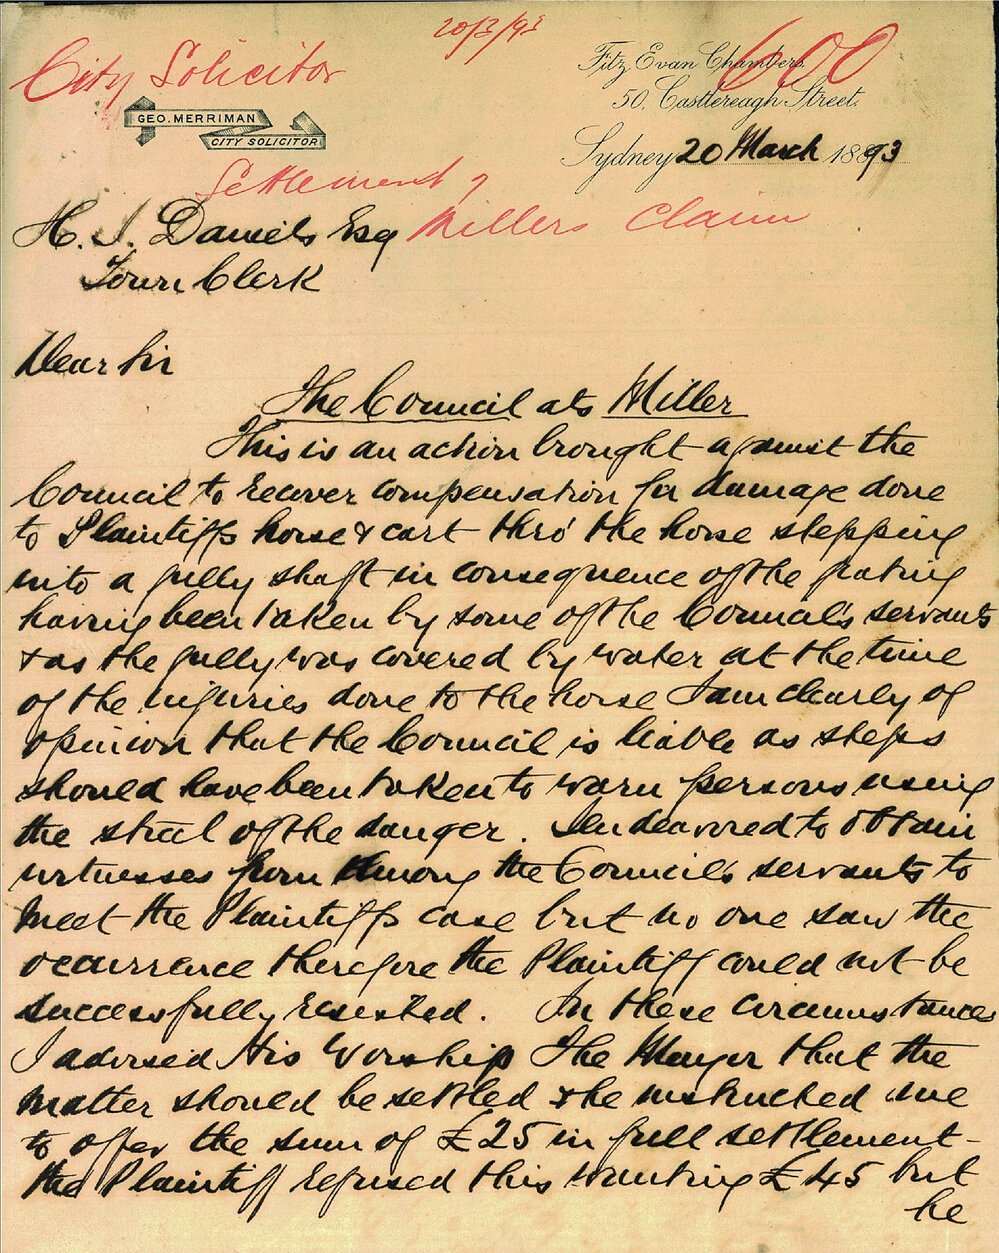 20/3/93
City Solicitor
600
Fitz Evan Chambers
50. Castlereagh Street.
GEO. MERRIMAN
CITY SOLICITOR
Sydney 20 March 1893
Settlement of
Millers Claim
H. J. Daniels Esq
Town Clerk
Dear Sir
The Council ats Miller
This is an action brought against the
Council to recover compensation for damage done
to Plaintiffs horse & cart thro' the horse stepping
into a gully shaft in consequence of the grating
having been taken by some of the Council's servants
& as the gully was covered by water at the time
of the injuries done to the horse I am clearly of
opinion that the Council is liable as steps
should have been taken to warn persons using
the street of the danger. I endeavored to obtain
witnesses from among the Council's servants to
meet the Plaintiffs case but no one saw the
occurrence therefore the Plaintiff could not be
successfully resisted. In these circumstances
I advised His Worship The Mayor that the
matter should be settled & he instructed me
to offer the sum of £25 in full settlement -
the Plaintiff refused this wanting £45 but
he